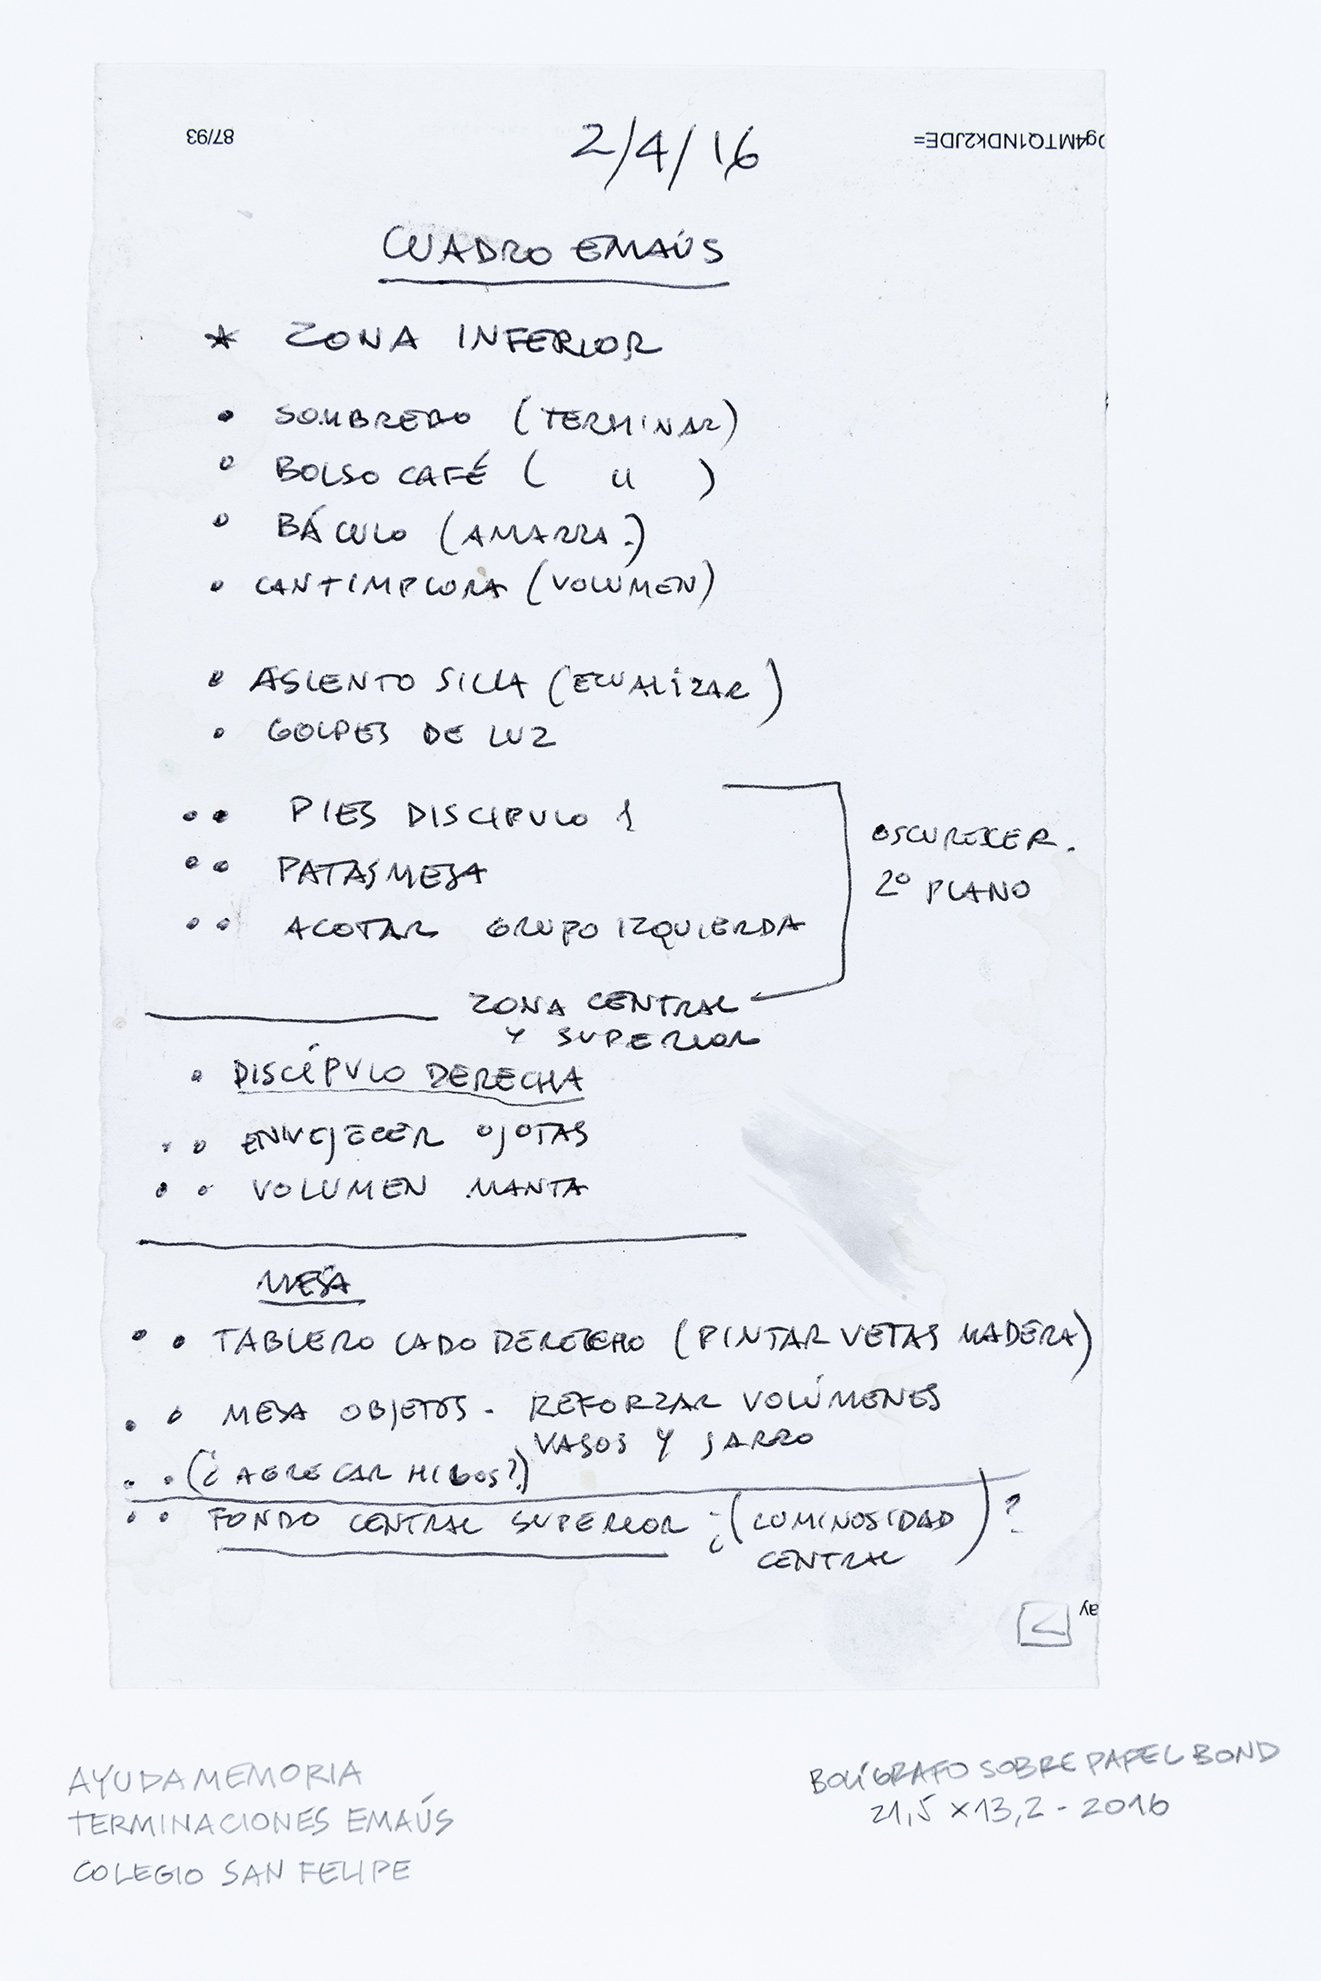 87/93
2/4/16
Dg4MTQ1NDk2JDE=
CUADRO EMAÚS
* ZONA INFERIOR
• SOMBRERO (TERMINAR)
• BOLSO CAFÉ ( " )
• BÁCULO (AMARRA.)
• CANTIMPLORA (VOLUMEN)
• ASIENTO SILLA (ECUALIZAR)
• GOLPES DE LUZ
• • PIES DISCIPULO 1
• • PATAS MESA
• • ACOTAR GRUPO IZQUIERDA
OSCURECER.
2º PLANO
ZONA CENTRAL
Y SUPERIOR
• DISCÍPULO DERECHA
• • ENVEJECER OJOTAS
• • VOLUMEN MANTA
MESA
• • TABLERO LADO DERECHO (PINTAR VETAS MADERA)
• • MESA OBJETOS - REFORZAR VOLÚMENES
VASOS Y JARRO
• • (¿AGREGAR HIGOS?)
• • FONDO CENTRAL SUPERIOR ¿(LUMINOSIDAD
CENTRAL)?
ay
2
AYUDAMEMORIA
TERMINACIONES EMAÚS
COLEGIO SAN FELIPE
BOLÍGRAFO SOBRE PAPEL BOND
21,5 x 13,2 - 2016